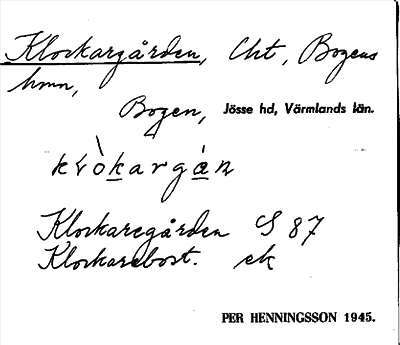 Klockargården, Cht, Bogens
hmn,
Bogen, Jösse hd, Värmlands län.
Klockaregården S 87
Klockarebost. ek
PER HENNINGSSON 1945.